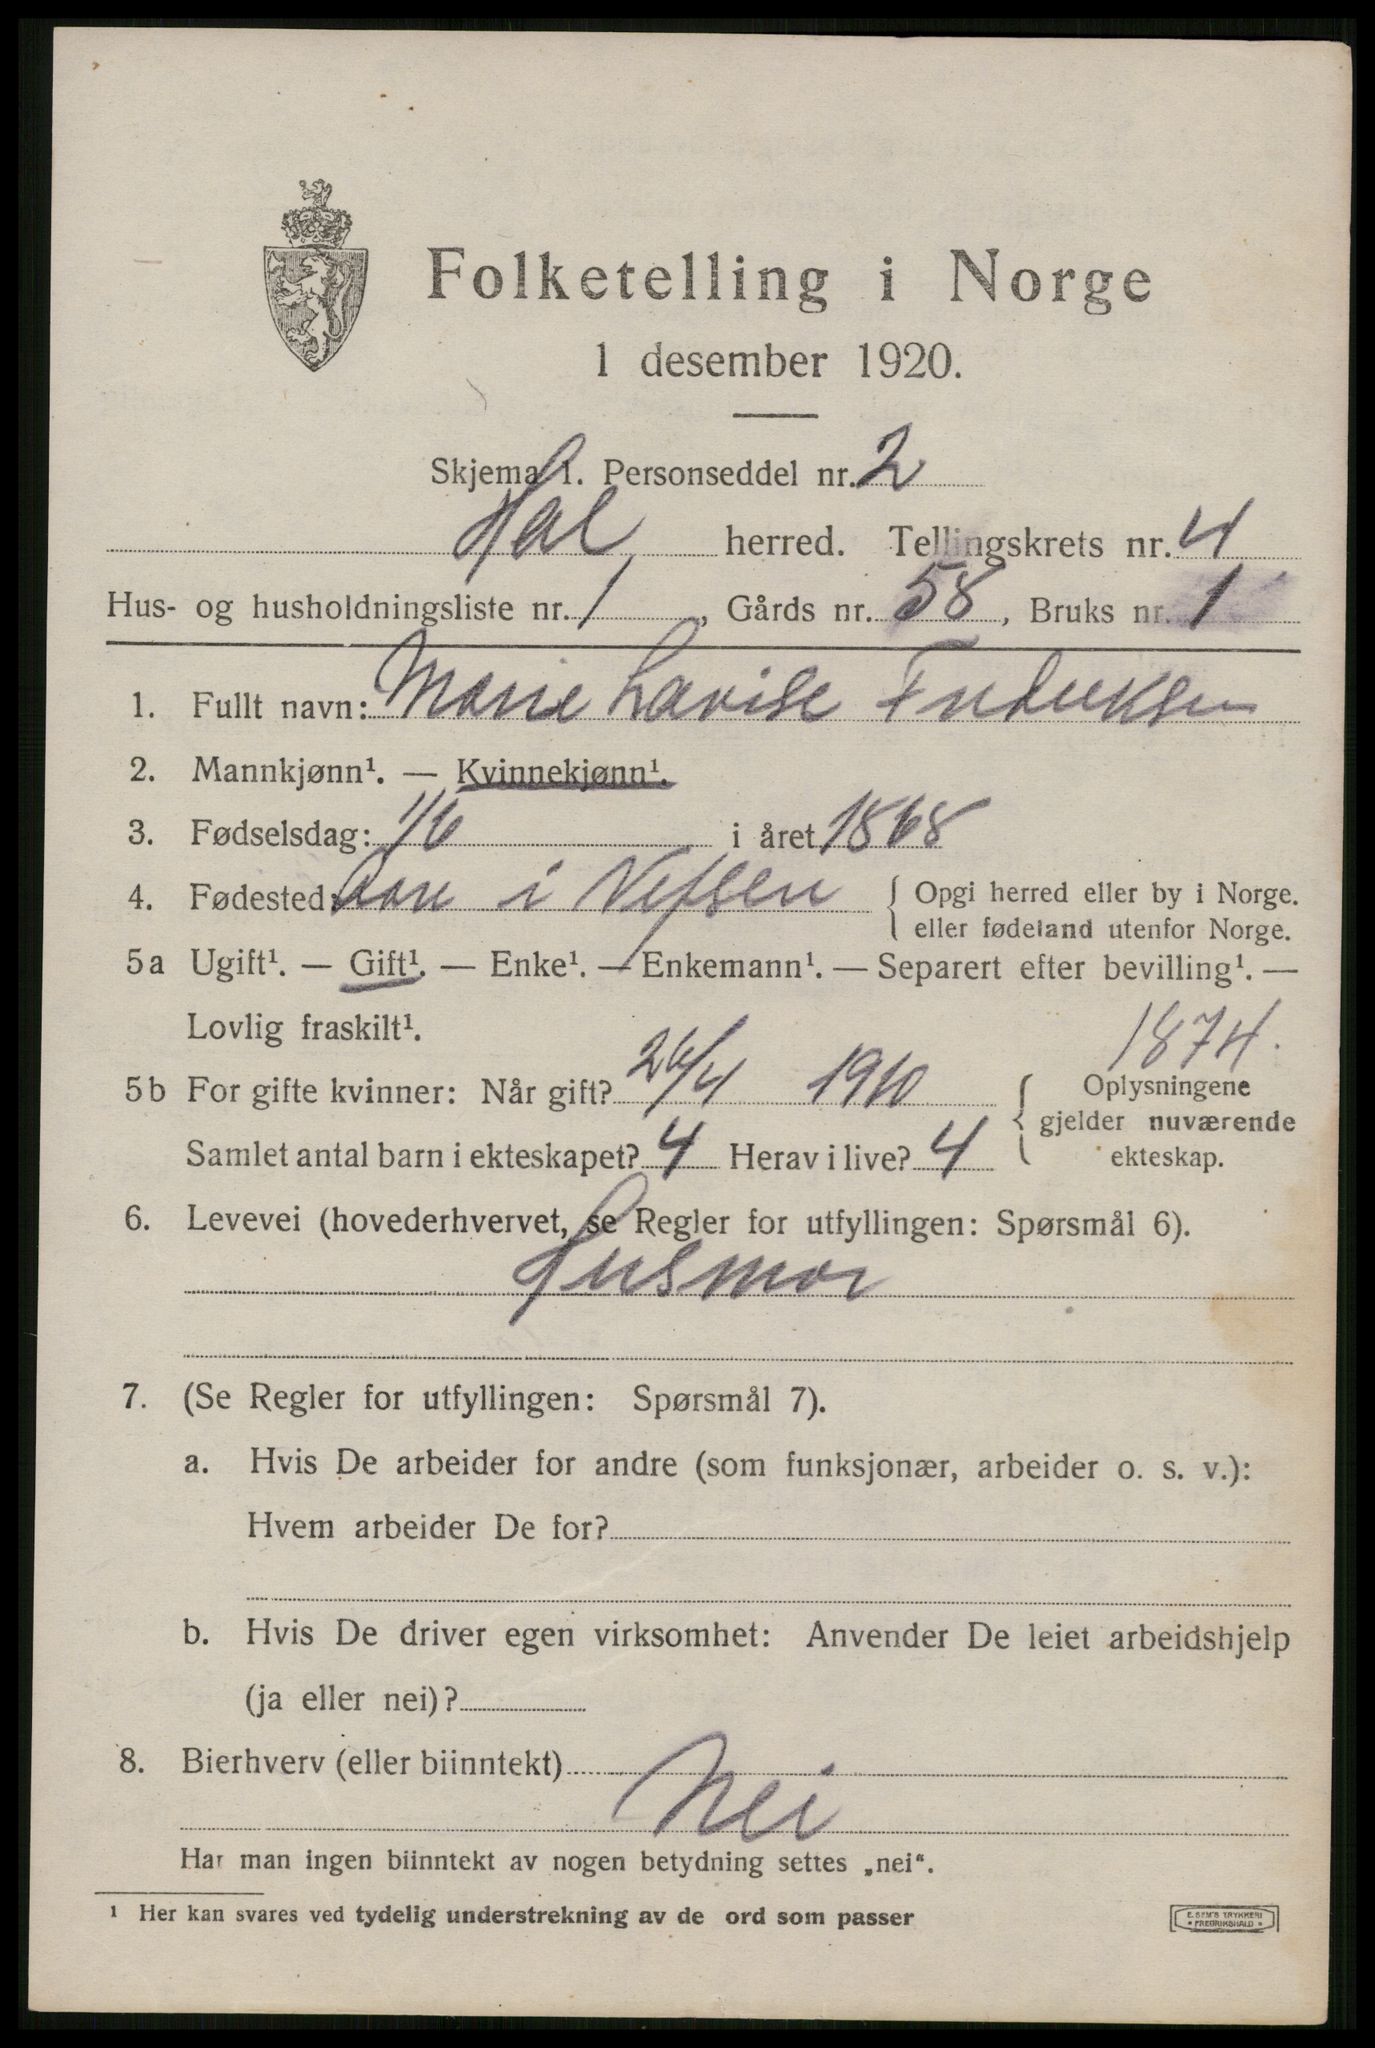 Folketelling i Norge
1 desember 1920.
Skjema 1. Personseddel nr. 2
Hol herred. Tellingskrets nr. 4
Hus- og husholdningsliste nr. 1, Gårds nr. 58, Bruks nr. 1
1. Fullt navn: Marie Lovise Fredriksen
2. Mannkjønn¹. — Kvinnekjønn¹.
3. Fødselsdag: 1/6 i året 1868
4. Fødested: i Vefsen { Opgi herred eller by i Norge.
eller fødeland utenfor Norge.
5a Ugift¹. — Gift¹. — Enke¹. — Enkemann¹. — Separert efter bevilling¹. —
Lovlig fraskilt¹. 1874.
5b For gifte kvinner: Når gift? 26/4 1910 { Oplysningene
gjelder nuværende
Samlet antal barn i ekteskapet? 4 Herav i live? 4 ekteskap.
6. Levevei (hovederhvervet, se Regler for utfyllingen: Spørsmål 6).
Husmor
7. (Se Regler for utfyllingen: Spørsmål 7).
a. Hvis De arbeider for andre (som funksjonær, arbeider o. s. v.):
Hvem arbeider De for?
b. Hvis De driver egen virksomhet: Anvender De leiet arbeidshjelp
(ja eller nei)?
8. Bierhverv (eller biinntekt)
Nei
Har man ingen biinntekt av nogen betydning settes „nei“.
¹ Her kan svares ved tydelig understrekning av de ord som passer
E. SEM'S TRYKKERI
FREDRIKSHALD